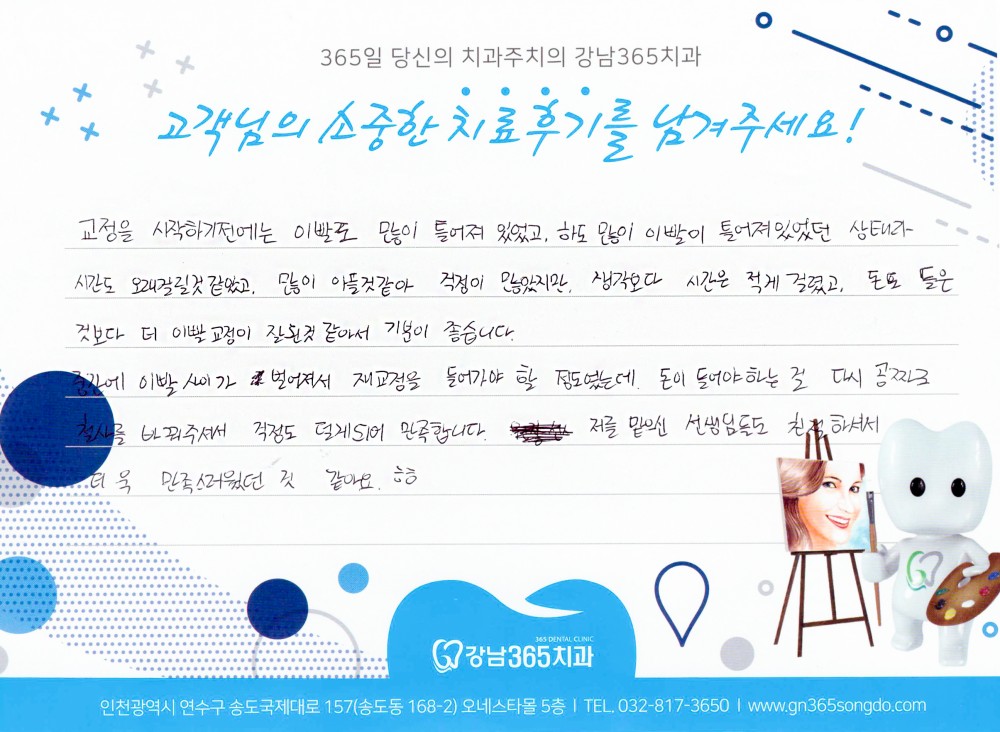 365일 당신의 치과주치의 강남365치과
고객님의 소중한 치료후기를 남겨주세요!
교정을 시작하기전에는 이빨도 많이 틀어져 있었고, 하도 많이 이빨이 틀어져있었던 상태라
시간도 오래걸릴것 같았고, 많이 아플것같아 걱정이 많았지만, 생각보다 시간은 적게 걸렸고, 돈도 들은
것보다 더 이빨 교정이 잘된것 같아서 기분이 좋습니다.
중간에 이빨 사이가 벌어져서 재교정을 들어가야 할 정도였는데, 돈이 들어야하는 걸 다시 공짜로
철사를 바꿔주셔서 걱정도 덜게되어 만족합니다. 저를 맡으신 선생님들도 친절하셔서
더욱 만족스러웠던 것 같아요. ㅎㅎ
365 DENTAL CLINIC
강남365치과
인천광역시 연수구 송도국제대로 157(송도동 168-2) 오네스타몰 5층 | TEL. 032-817-3650 | www.gn365songdo.com